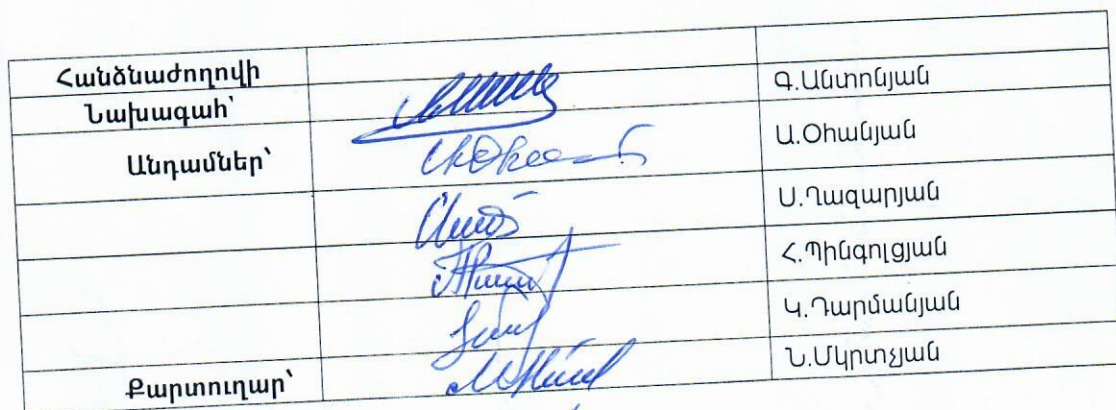 Հանձնաժողովի
Նախագահ՝ Գ.Անտոնյան
Անդամներ՝ Ա.Օհանյան
Ս.Ղազարյան
Հ.Պինգոլցյան
Կ.Դարմանյան
Քարտուղար՝ Ն.Մկրտչյան